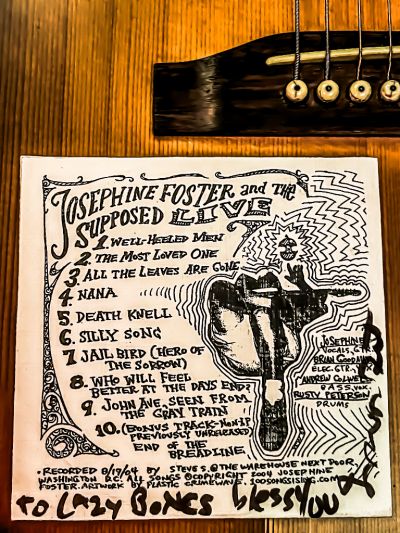 JOSEPHINE FOSTER and THE
SUPPOSED LIVE
1. WELL-HEELED MEN
2. THE MOST LOVED ONE
3. ALL THE LEAVES ARE GONE
4. NANA
5. DEATH KNELL
6. SILLY SONG
7. JAIL BIRD (HERO OF
THE SORROW)
8. WHO WILL FEEL
BETTER AT THE DAYS END?
9. JOHN AVE. SEEN FROM
THE GRAY TRAIN
10. (BONUS TRACK-NON-LP
PREVIOUSLY UNRELEASED)
END OF THE
BREADLINE.
JOSEPHINE
VOCALS, GTR.
BRIAN GOODMAN
ELEC. GTR.,
ANDREW
BASS, VOX.
RUSTY PETERSON
DRUMS
• RECORDED 8/19/04 BY STEVE S. @ THE WAREHOUSE NEXT DOOR,
WASHINGTON D.C. ALL SONGS © COPYRIGHT 2004 JOSEPHINE
FOSTER. ARTWORK BY PLASTIC CRIMEWAVE. 100SONGSISING.COM
TO LAZY BONES bless you